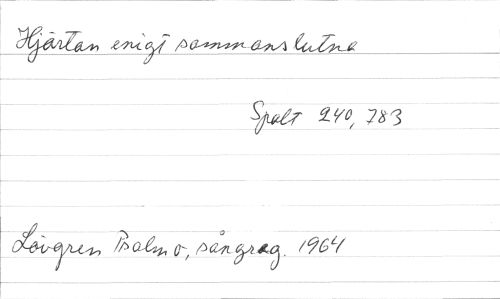 Hjärtan enigt sammanslutna
Spalt 240, 783
Lövgren Psalm o, sångreg. 1964